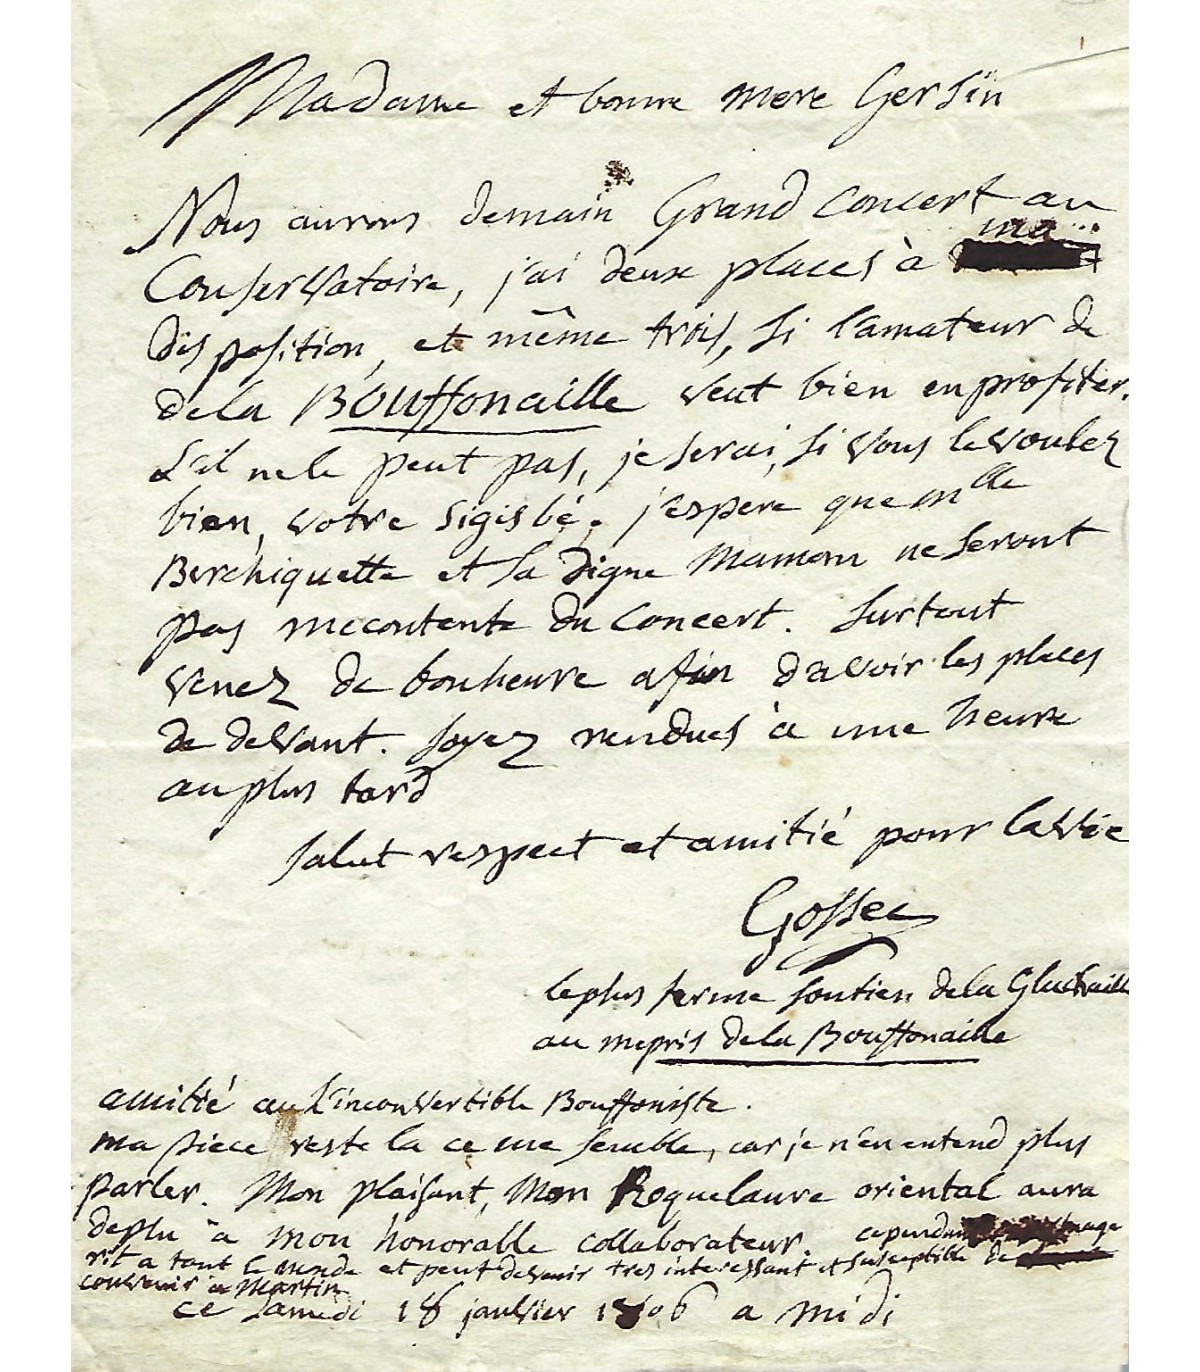 Madame et bonne mere Gersin
Nous aurons demain Grand Concert au
Conservatoire, j'ai deux places à ma
disposition, et même trois, si l'amateur de
de la Bouffonaille veut bien en profiter.
S'il ne le peut pas, je serai, si vous le voulez
bien, votre sigisbé. j'espere que Mlle
Berchiquette et sa digne Mamam ne seront
pas mecontente du Concert. Surtout
venez de bonheure afin d'avoir les places
de devant. soyez rendues à une heure
au plus tard
salut respect et amitié pour la vie
Gossec
le plus ferme soutien de la Gluckaille
au mepris de la Bouffonaille
amitié au L'inconvertible Bouffoniste.
ma piece reste la ce me semble, car je n'en entend plus
parler. Mon plaisant, Mon Roquelaure oriental aura
deplu à mon honorable collaborateur. cependant
rit a tout le monde et peut devenir tres interessant et susceptible de
convenir a Martin
ce Samedi 18 janvier 1806 a midi